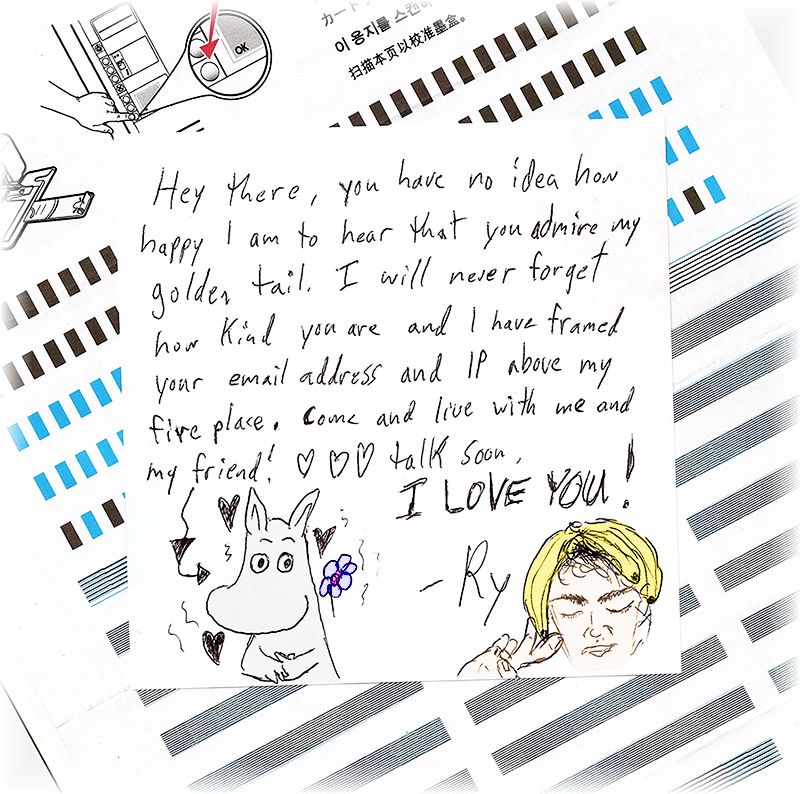 OK
カート
이 용지를 스캔하
扫描本页以校准墨盒。
Hey there, you have no idea how
happy I am to hear that you admire my
golden tail. I will never forget
how kind you are and I have framed
your email address and IP above my
fire place. Come and live with me and
my friend! ♡♡♡ talk soon.
I LOVE YOU!
- Ry